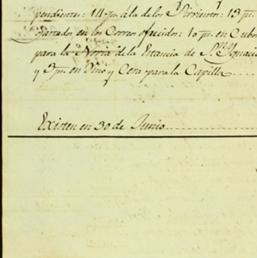 pendientes: 14 p.s á la de los Sirvientes: 13 p.s
gastados en los Corrales ofrecidos: 10 p.s en Cubos
para la Noria de la Estancia de S.n Ignacio
y 3 p.s en Vino y Cera para la Capilla
Existen en 30 de Junio